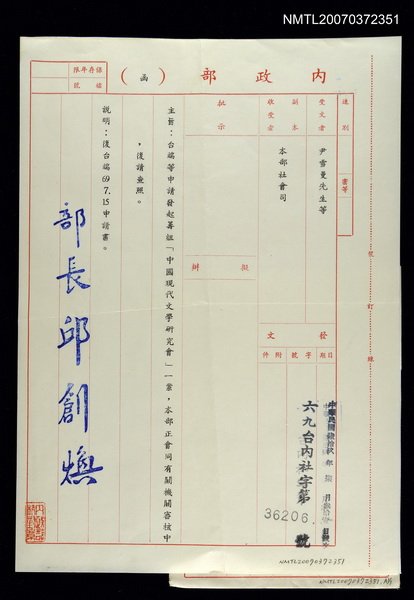 NMTL20070372351
內政部（函）
保存年限
檔號
速別
書等
受文者 尹雪曼先生等
副本收受者 本部社會司
批示
擬辦
發文
日期 字號 附件
中華民國
六九台內社字第
36206
號
主旨：台端等申請發起籌組「中國現代文學研究會」一案，本部正會同有關機關審核中
，復請查照。
說明：復台端69.7.15申請書。
部長邱創煥
裝訂線
NMTL20070372351
NMTL20070372351